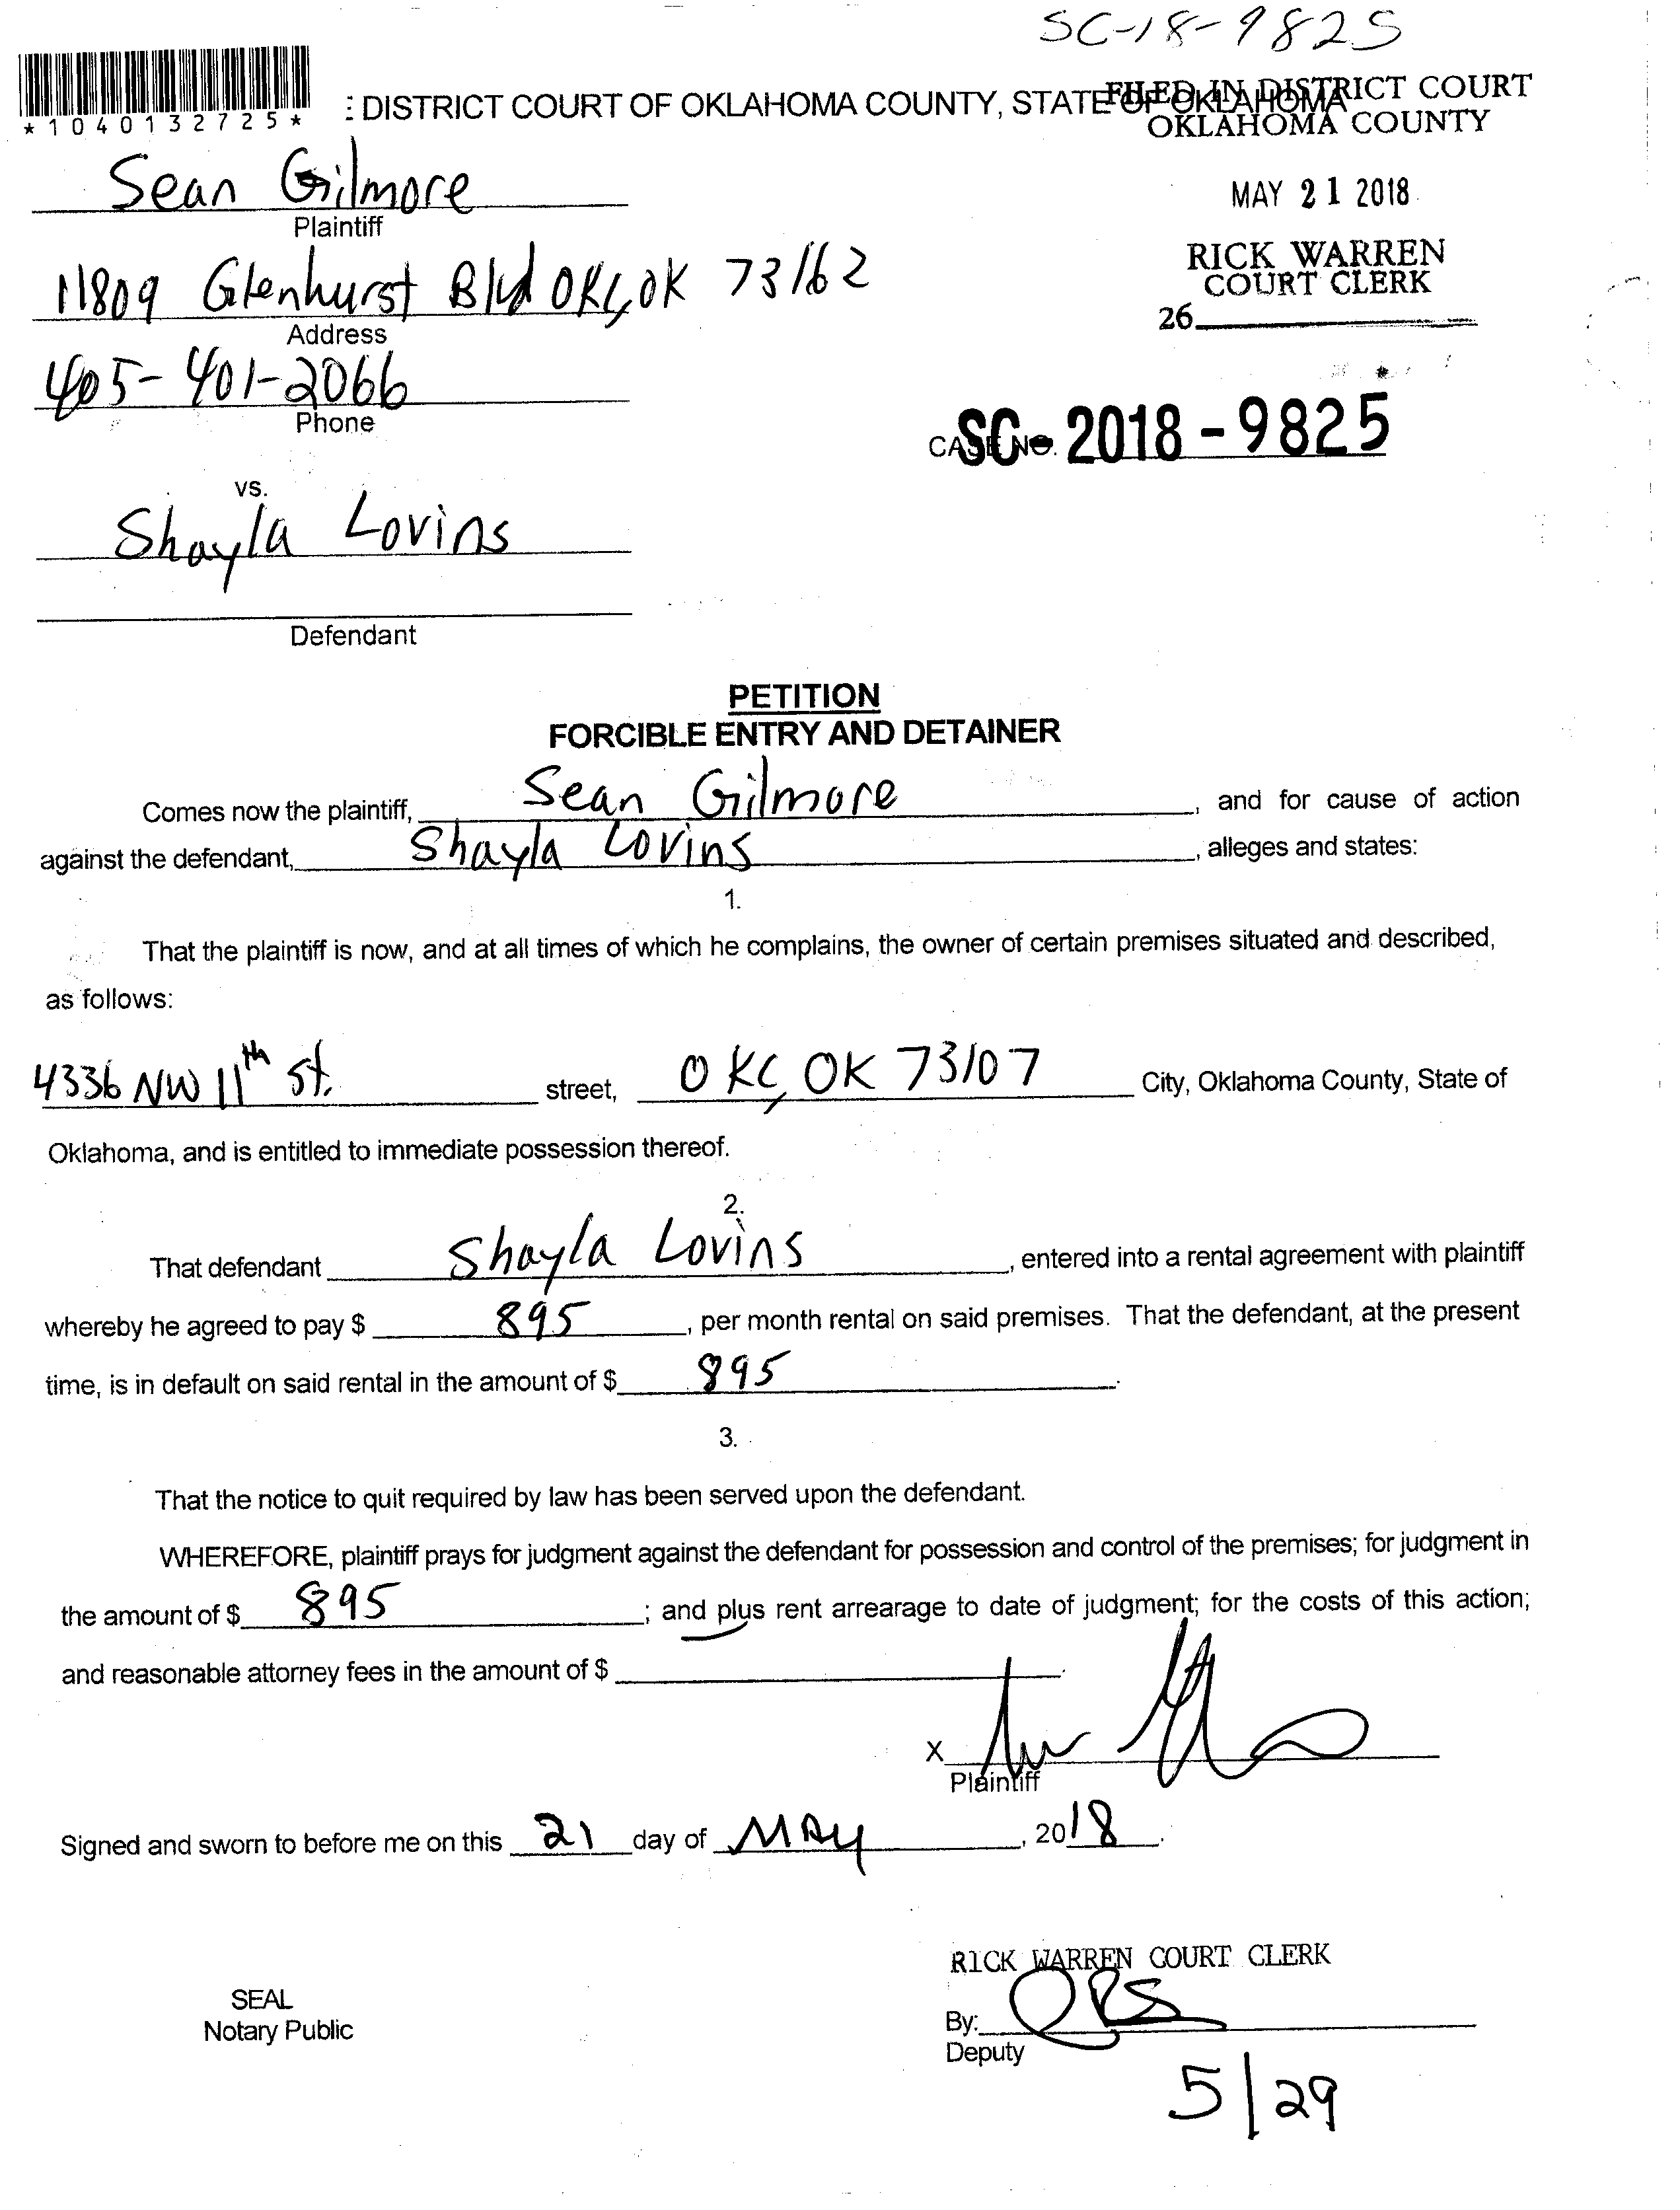 SC-18-9825
*1040132725*
: DISTRICT COURT OF OKLAHOMA COUNTY, STATE OF OKLAHOMA
FILED IN DISTRICT COURT
OKLAHOMA COUNTY
Sean Gilmore
MAY 21 2018
Plaintiff
RICK WARREN
COURT CLERK
11809 Glenhurst Blvd OKC, OK 73162
26
Address
405-401-2066
Phone
CASE NO. SC-2018-9825
vs.
Shayla Lovins
Defendant
PETITION
FORCIBLE ENTRY AND DETAINER
Comes now the plaintiff, Sean Gilmore, and for cause of action
against the defendant, Shayla Lovins, alleges and states:
1.
That the plaintiff is now, and at all times of which he complains, the owner of certain premises situated and described,
as follows:
4336 NW 11th St. street, OKC, OK 73107 City, Oklahoma County, State of
Oklahoma, and is entitled to immediate possession thereof.
2.
That defendant Shayla Lovins, entered into a rental agreement with plaintiff
whereby he agreed to pay $ 895, per month rental on said premises. That the defendant, at the present
time, is in default on said rental in the amount of $ 895.
3.
That the notice to quit required by law has been served upon the defendant.
WHEREFORE, plaintiff prays for judgment against the defendant for possession and control of the premises; for judgment in
the amount of $ 895; and plus rent arrearage to date of judgment; for the costs of this action;
and reasonable attorney fees in the amount of $ .
X
Plaintiff
Signed and sworn to before me on this 21 day of May, 2018.
RICK WARREN COURT CLERK
SEAL
Notary Public
By:
Deputy
5/29